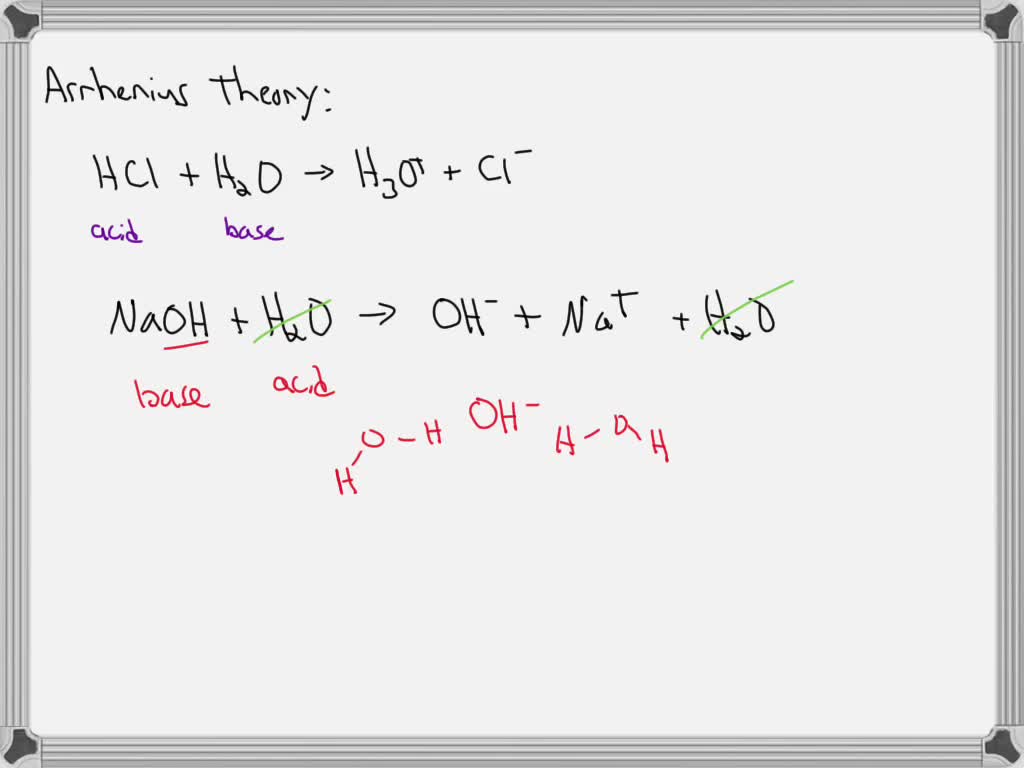 Arrhenius Theory:
HCl + H₂O → H₃O⁺ + Cl⁻
acid base
NaOH + H₂O → OH⁻ + Na⁺ + H₂O
base acid
O - H OH⁻ H - O
H H